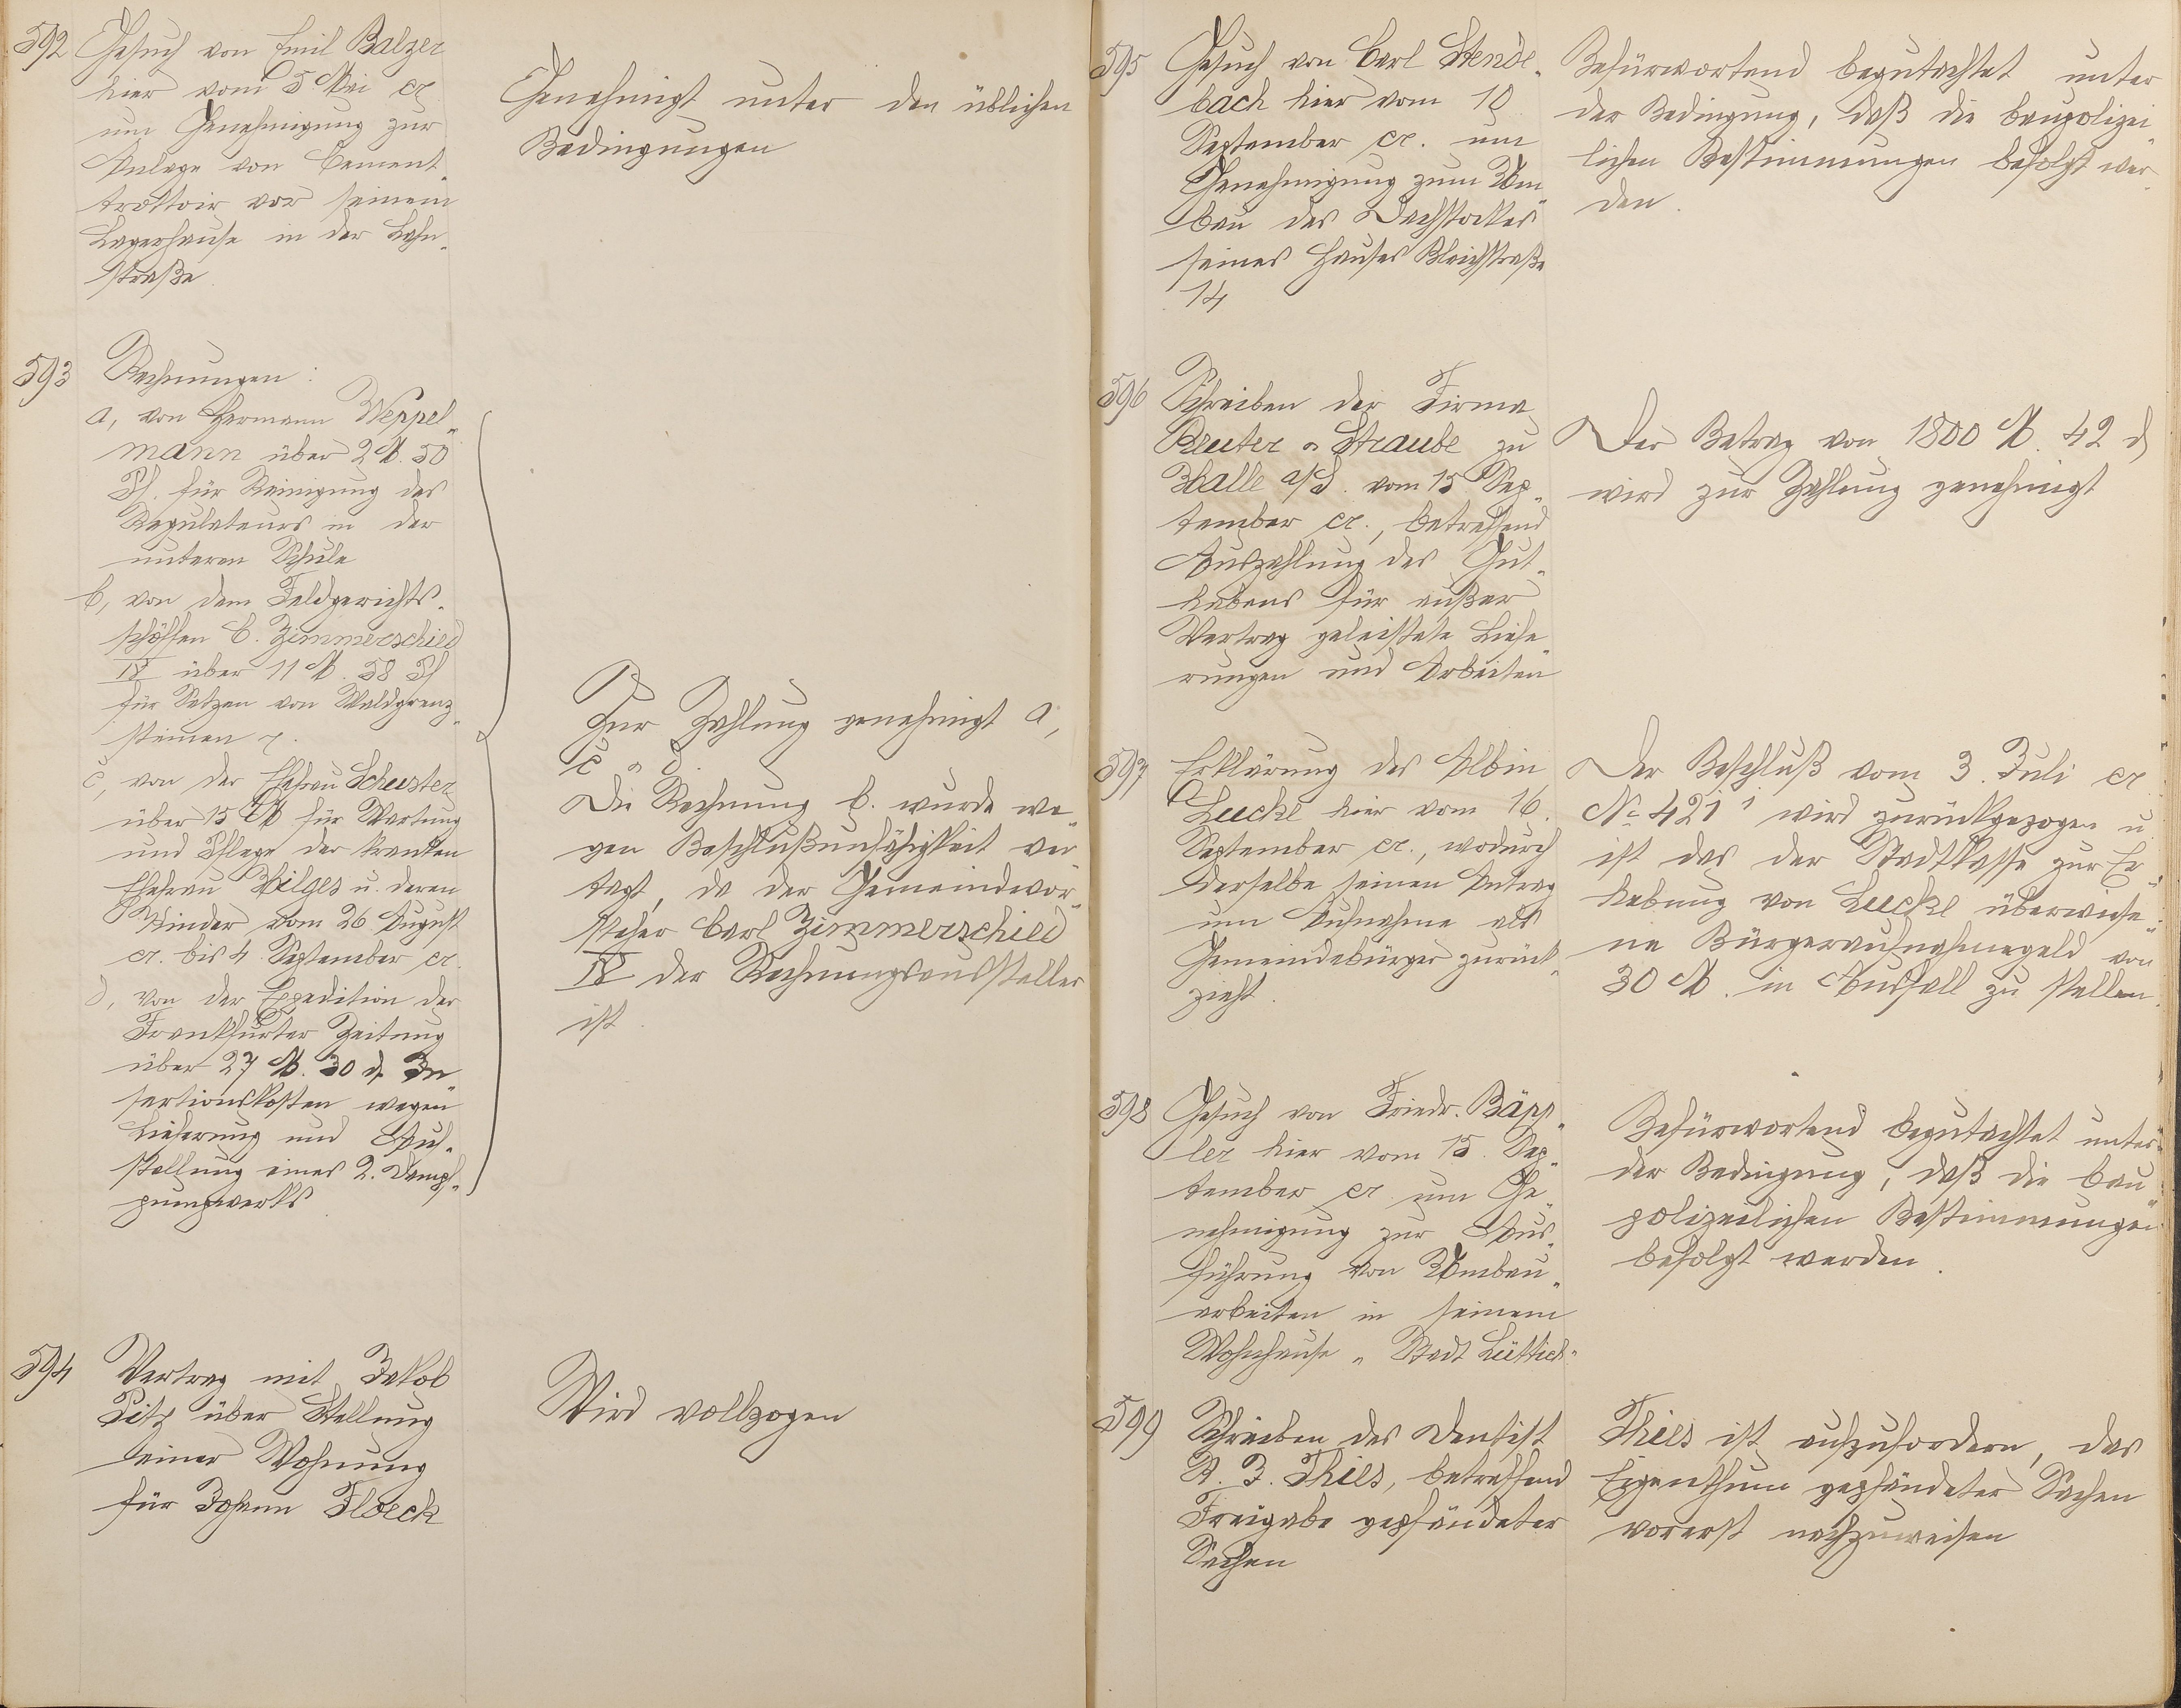 592
Gesuch von Emil Balzer
hier vom 5 Mai cr
um Genehmigung zur
Anlage von Cement„
trottoir vor seinem
Lagerhause in der Lahn„
straße
Genehmigt unter den üblichen
Bedingungen
593
Rechnungen:
a, von Hermann Weppel„
mann über 2 M. 50
Pf. für Reinigung des
Regulateurs in der
unteren Schule
b, von dem Feldgerichts„
schöffen C. Zimmerschied
IV über 11 M. 58 Pf
für Setzen von Waldgrenz„
steinen
c, von der Ehefrau Schuster
über 15 M für Wartung
und Pflege der kranken
Ehefrau Hilges u. deren
Kinder vom 26 August
cr. bis 4 September cr.
d, von der Expedition der
Frankfurter Zeitung
über 27 M. 30 d. In„
sertionskosten wegen
Lieferung und Auf„
stellung eines 2. Dampf„
pumpwerks
Zur Zahlung genehmigt a,
c & d.
Die Rechnung b. wurde we„
gen Beschlußunfähigkeit ver„
tagt, da der Gemeindevor„
steher Carl Zimmerschied
IV der Rechnungsaussteller
ist.
594
Vertrag mit Jakob
Pitz über Stellung
einer Wohnung
für Johann Floeck
Wird vollzogen
595
Gesuch von Carl Stende„
bach hier vom 10
September cr. um
Genehmigung zum Um„
bau des Dachstockes
seines Hauses Bleichstraße
14
Befürwortend begutachtet unter
der Bedingung, daß die baupolizei„
lichen Bestimmungen befolgt wer„
den.
596
Schreiben der Firma
Reuter & Straube zu
Halle a/S. vom 15 Sep„
tember cr., betreffend
Auszahlung des Gut„
habens für außer
Vertrag geleistete Liefe„
rungen und Arbeiten
Der Betrag von 1800 M. 42 d
wird zur Zahlung genehmigt
597
Erklärung des Albin
Luckl hier vom 16.
September cr., wodurch
derselbe seinen Antrag
um Aufnahme als
Gemeindebürger zurück„
zieht.
Der Beschluß vom 3. Juli cr.
No 421 wird zurückgezogen u.
ist das der Stadtkasse zur Er„
hebung von Luckl überwiese„
ne Bürgeraufnahmegeld von
30 M. in Ausfall zu stellen.
598
Gesuch von Friedr. Bäpp„
ler hier vom 15. Sep„
tember cr um Ge„
nehmigung zur Aus„
führung von Umbau„
arbeiten in seinem
Wohnhause „Stadt Lüttich“
Befürwortend begutachtet unter
der Bedingung, daß die bau„
polizeilichen Bestimmungen
befolgt werden.
599
Schreiben des Dentist
R. F. Thies, betreffend
Freigabe gepfändeter
Sachen
Thies ist aufzufordern, das
Eigenthum gepfändeter Sachen
vorerst nachzuweisen